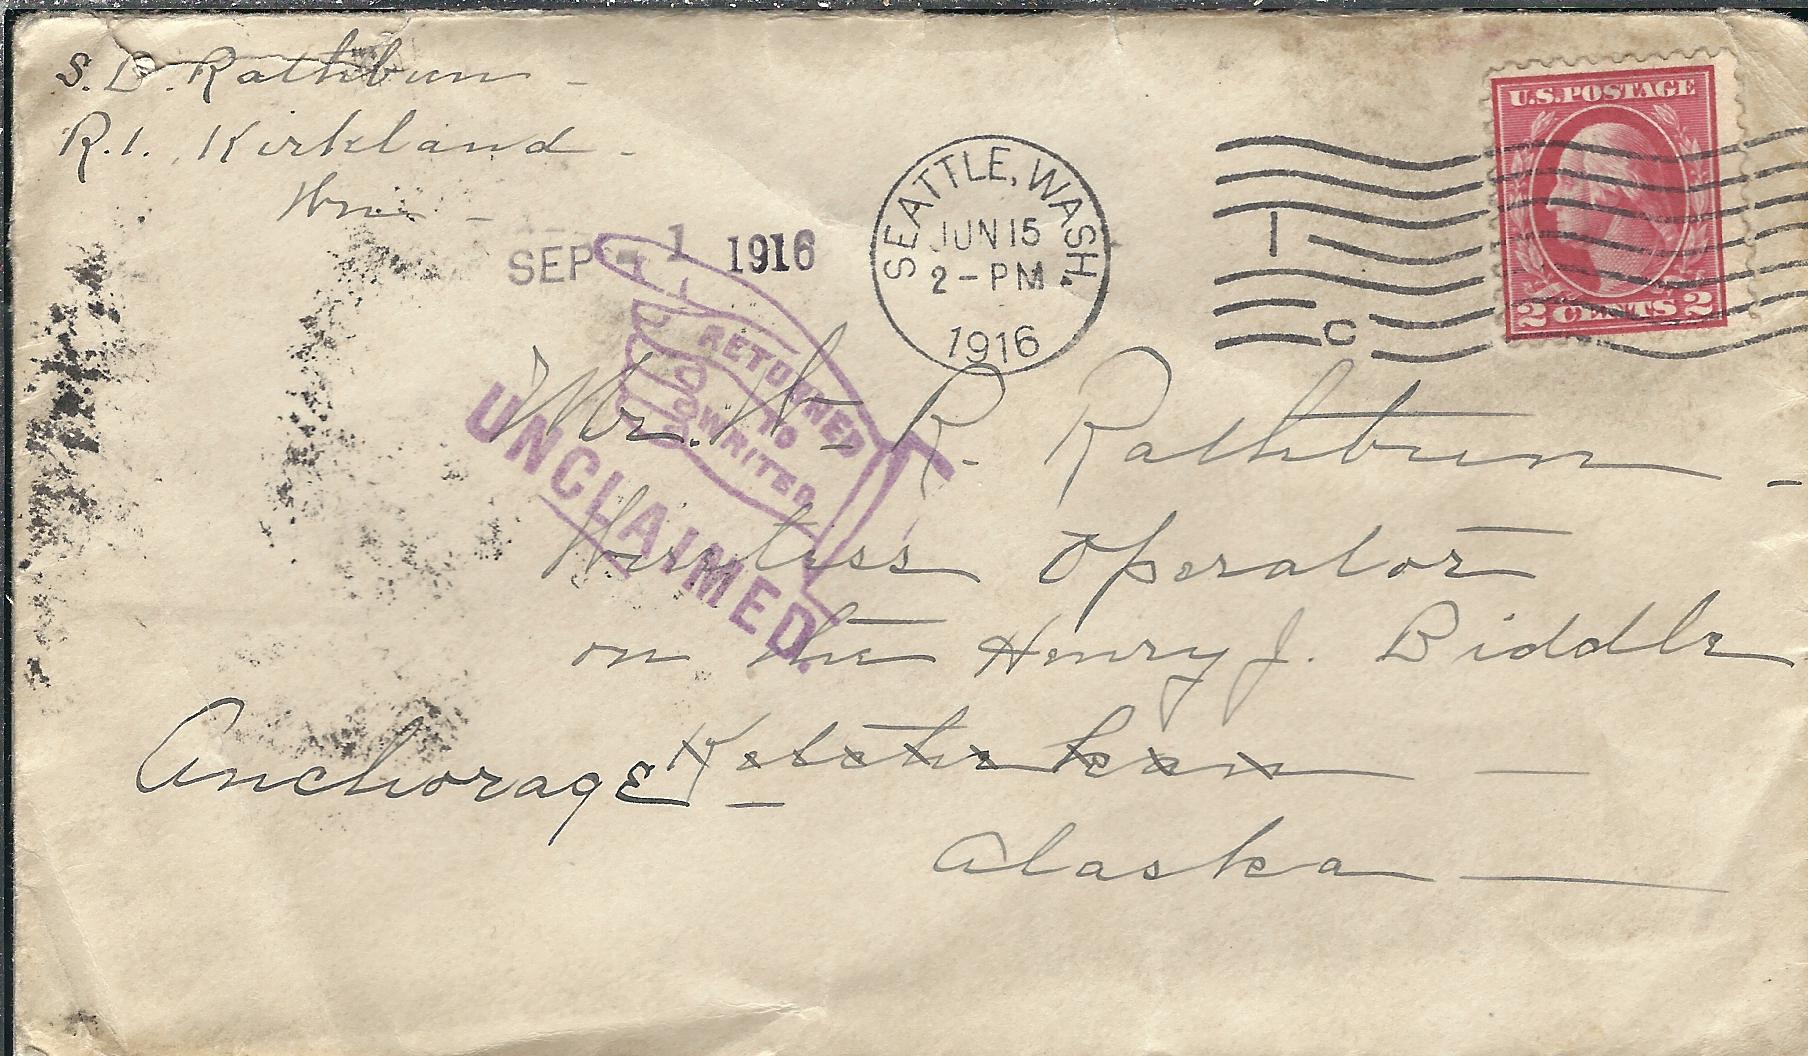 S. D. Rathbun -
R.1. Kirkland -
Wn -
SEP - 1 1916
SEATTLE, WASH.
JUN 15
2 - PM
1916
1
C
U.S. POSTAGE
2 CENTS 2
RETURNED
TO
WRITER
UNCLAIMED.
Mr. W. R. Rathbun -
Wireless Operator
on the Henry J. Biddle
Anchorage Ketchikan -
Alaska